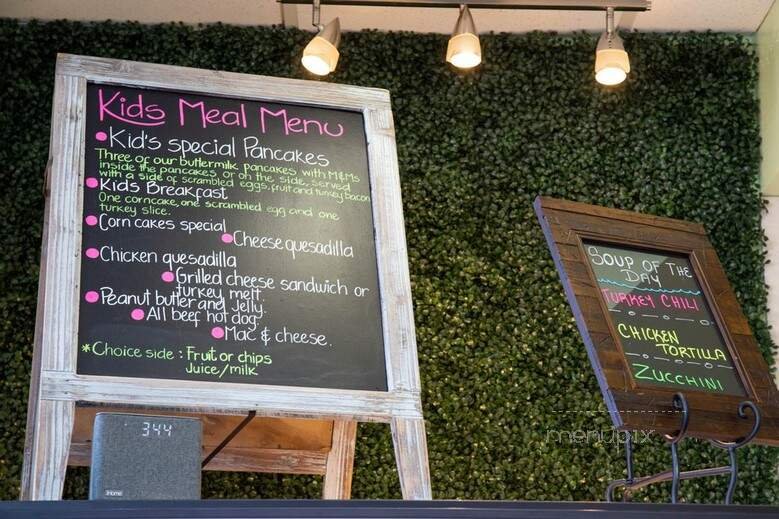 Kids Meal Menu
Kid's special Pancakes
Three of our buttermilk pancakes with M&Ms
inside the pancakes or on the side, served
with a side of scrambled eggs, fruit and turkey bacon
Kids Breakfast
One corncake, one scrambled egg and one
turkey slice.
Corn cakes special
Cheese quesadilla
Chicken quesadilla
Grilled cheese sandwich or
turkey melt.
Peanut butter and Jelly.
All beef hot dog.
Mac & cheese.
*Choice side: Fruit or chips
Juice/milk
344
iHome
Soup of the
Day
Turkey Chili
Chicken
Tortilla
Zucchini
menupix